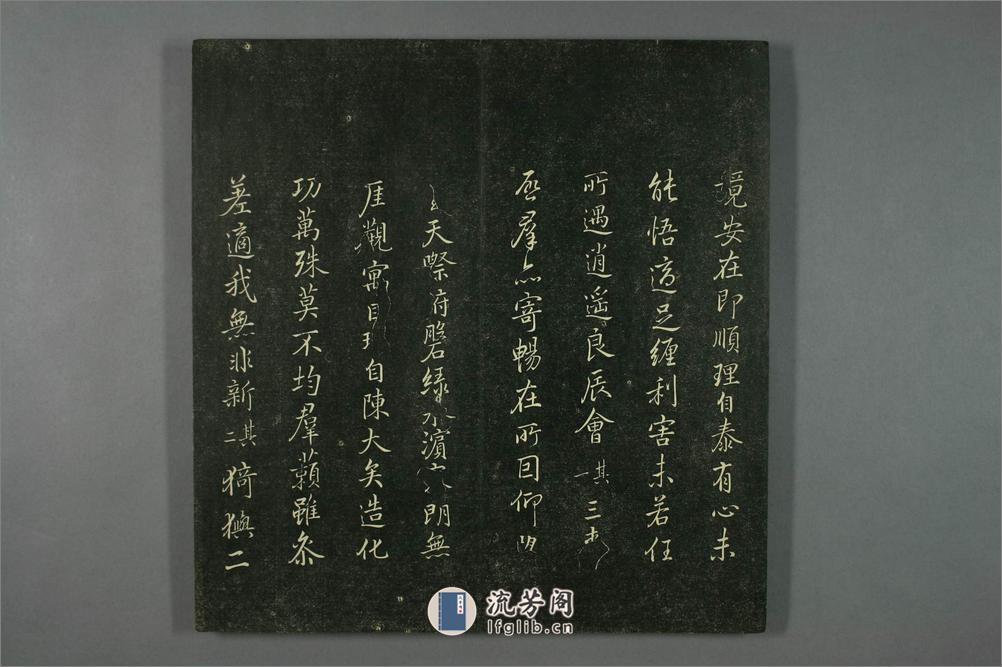 境安在即順理自泰有心未
能悟適足纏利害未若任
所遇逍遙良辰會其一三
啓羣品寄暢在所因仰
天際府磐綠水濱朗無
厓觀寓目理自陳大矣造化
功萬殊莫不均羣籟雖參
差適我無非新其二猗二
流芳阁
lfglib.cn